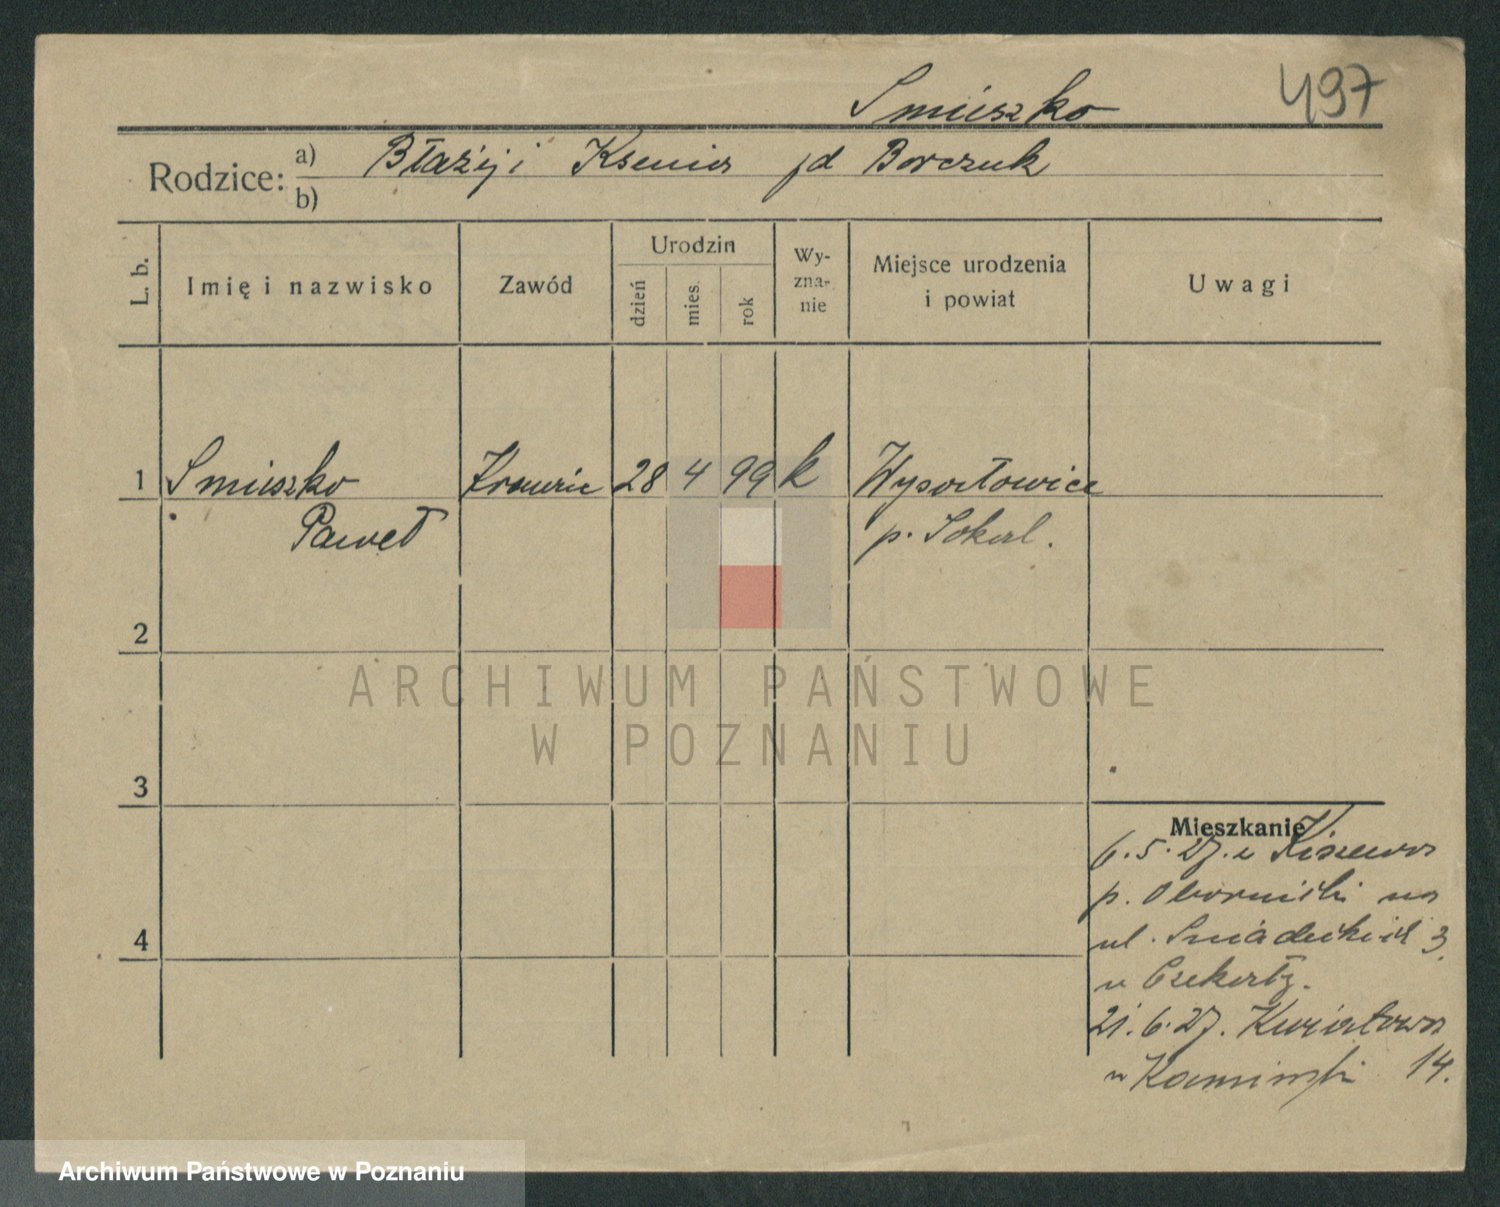 497
Smieszko
Rodzice: a) Błażej i Ksenia jd Borczuk
b)
L. b.
Imię i nazwisko
Zawód
Urodzin
dzień
mies.
rok
Wy-
zna-
nie
Miejsce urodzenia
i powiat
Uwagi
1 Smieszko 28 4 99 k
Paweł p. Sokal.
2
ARCHIWUM PAŃSTWOWE
W POZNANIU
3
Mieszkanie
6.5.27. z Kiszewa
p. Oborniki na
ul. Śniadeckich 3
21.6.27. Kwiatowa
u Kamiński 14.
4
Archiwum Państwowe w Poznaniu